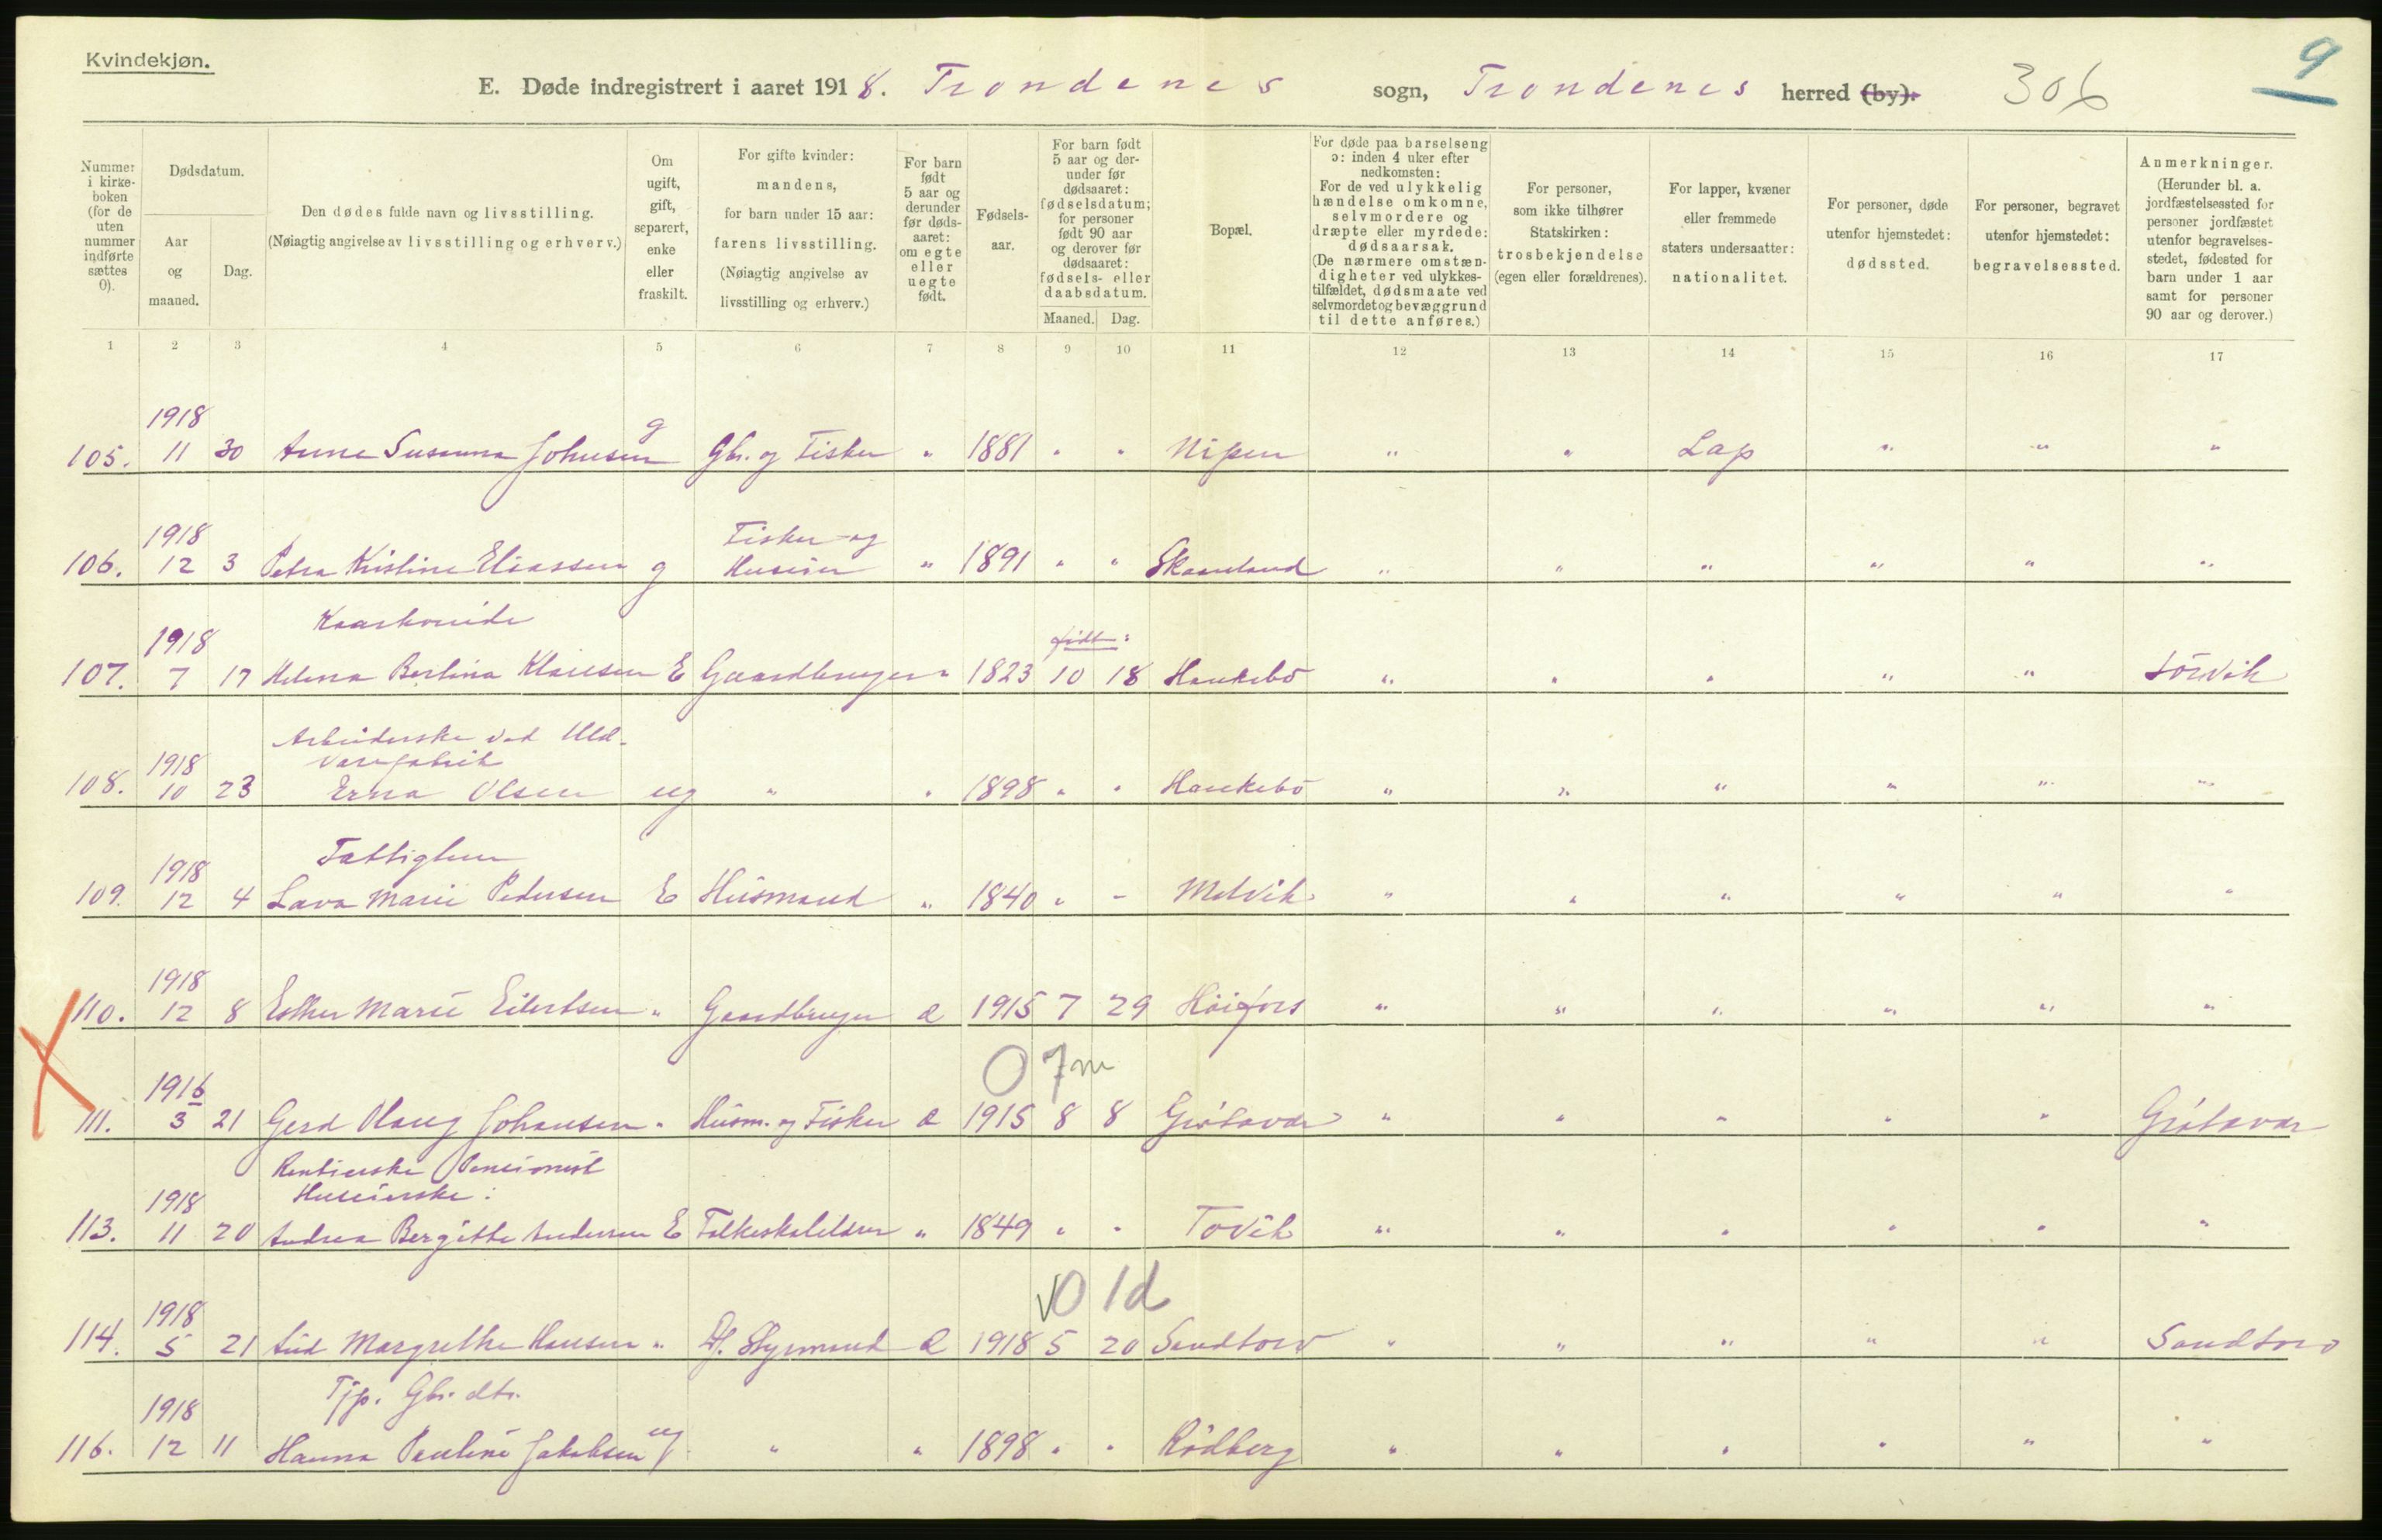 Kvindekjøn.
9
E. Døde indregistrert i aaret 1918. Trondenes sogn, Trondenes herred (by). 306
Nummer i kirke-boken (for de uten nummer indførte sættes 0).
Dødsdatum.
Aar og maaned.
Dag.
Den dødes fulde navn og livsstilling.
(Nøiagtig angivelse av livsstilling og erhverv.)
Om ugift, gift, separert, enke eller fraskilt.
For gifte kvinder: mandens, for barn under 15 aar: farens livsstilling.
(Nøiagtig angivelse av livsstilling og erhverv.)
For barn født 5 aar og derunder før døds-aaret: om egte eller uegte født.
Fødsels-aar.
For barn født 5 aar og der-under før dødsaaret: fødselsdatum; for personer født 90 aar og derover før dødsaaret: fødsels- eller daabsdatum.
Maaned. Dag.
Bopæl.
For døde paa barselseng ɔ: inden 4 uker efter nedkomsten:
For de ved ulykkelig hændelse omkomne, selvmordere og dræpte eller myrdede: dødsaarsak.
(De nærmere omstæn-digheter ved ulykkes-tilfældet, dødsmaate ved selvmordet og bevæggrund til dette anføres.)
For personer, som ikke tilhører Statskirken: trosbekjendelse (egen eller forældrenes).
For lapper, kvæner eller fremmede staters undersaatter: nationalitet.
For personer, døde utenfor hjemstedet: dødssted.
For personer, begravet utenfor hjemstedet: begravelsessted.
Anmerkninger.
(Herunder bl. a. jordfæstelsessted for personer jordfæstet utenfor begravelses-stedet, fødested for barn under 1 aar samt for personer 90 aar og derover.)
1 2 3 4 5 6 7 8 9 10 11 12 13 14 15 16 17
1918
105. 11 30 Anne Susanna Johnsen g Gbr. og Fisker " 1881 " " Nipen " " Lap " " "
1918 Fisker og
106. 12 3 Petra Kristine Eliassen g Huseier " 1891 " " Skaanland " " " " " "
Kaarkvinde
1918 født:
107. 7 17 Helena Berlina Klausen E Gaardbruger " 1823 10 18 Haukebø " " " " "
Arbeiderske ved Uld-
1918 varefabrik
108. 10 23 Erna Olsen ug " " 1898 " " Haukebø " " " " " "
Fattiglem
1918
109. 12 4 Lava Marie Pedersen E Husmand " 1840 " - Melvik " " " " " "
1918
110. 12 8 Esther Marie Eilertsen " Gaardbruger e 1915 7 29 Høifors " " " " " "
0 7m
1916
111. 3 21 Gerd Olaug Johansen " Husm. og Fisker e 1915 8 8 Grøtavær " " " " " Grøtavær
Rentierske Pensionist
1918 Huseierske:
113. 11 20 Andrea Bergitte Andersen E Folkeskolelærer " 1849 " " Tovik " " " " " "
0 1d
1918
114. 5 21 Margrethe Hansen " Styrmand e 1918 5 20 Sandtorv " " " " " Sandtorv
Tjp. Gbr. dtr.
1918
116. 12 11 Hanna Pauline Jakobsen ug " " 1898 " " Rødberg " " " " " "